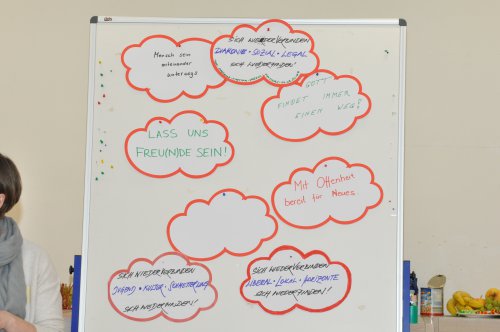 Mensch sein
miteinander
unterwegs
SICH WIEDER VERBINDEN
DIAKONIE • SOZIAL • LEGAL
SICH WIEDERFINDEN!
GOTT
FINDET IMMER
EINEN WEG!
LASS UNS
FREU(N)DE SEIN!
Mit Offenheit
bereit für Neues
SICH WIEDERVERBINDEN
JUGEND • KULTUR •
SICH WIEDERFINDEN!
SICH WIEDERVERBINDEN
LIBERAL • LOKAL • HORIZONTE
SICH WIEDERFINDEN!